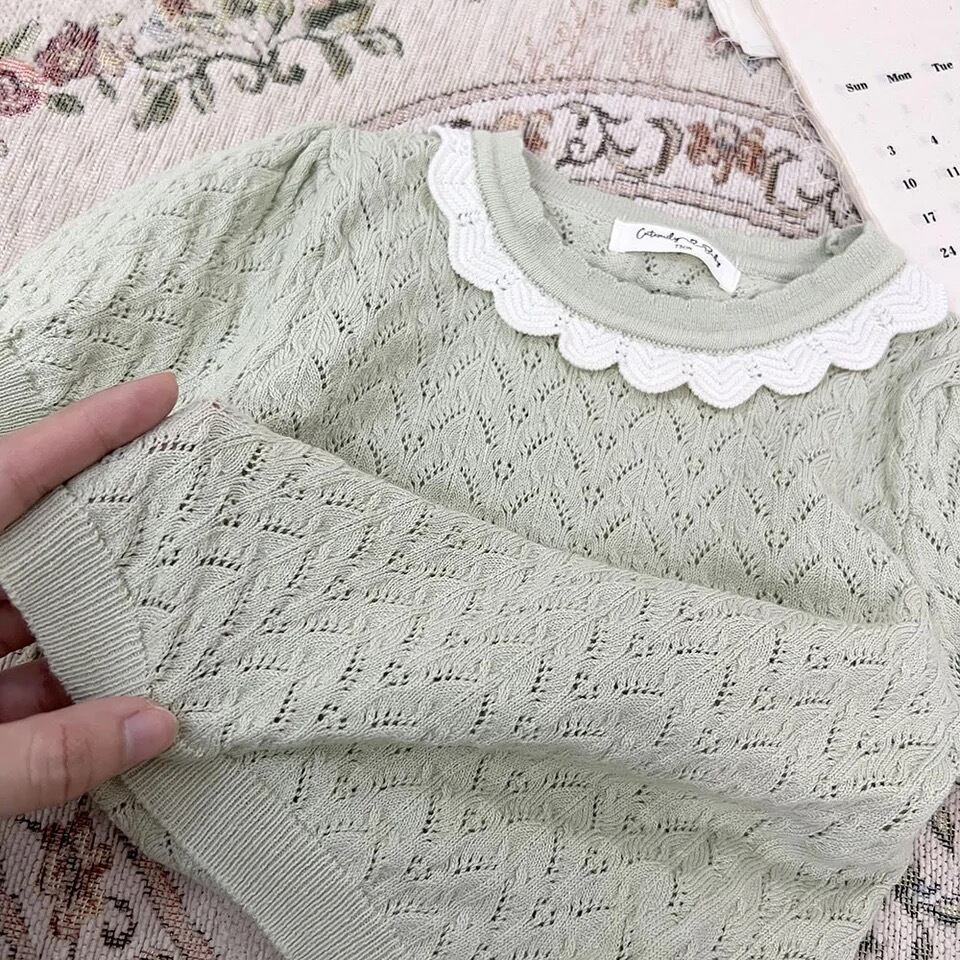 Sun Mon Tue
3 4
10 11
17
24
73cm